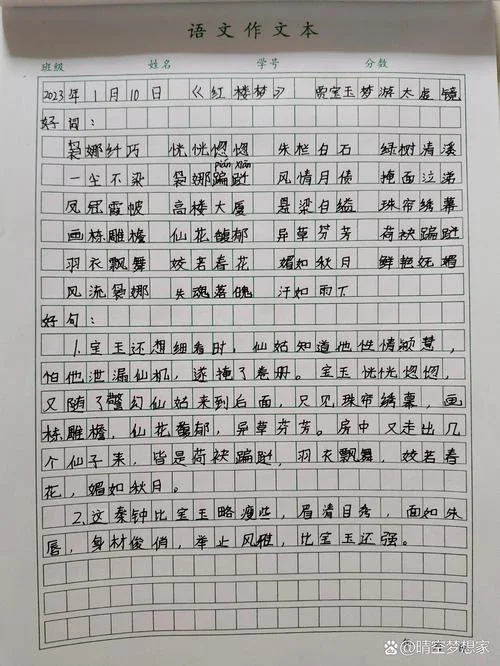 语文作文本
班级 姓名 学号 分数
2023年1月10日 《红楼梦》 贾宝玉梦游太虚镜
好词：
袅娜纤巧 恍恍惚惚 朱栏白石 绿树清溪
pián xiān
一尘不染 袅娜蹁跹 风情月债 掩面泣涕
凤冠霞帔 高楼大厦 悬梁自缢 珠帘绣幕
画栋雕檐 仙花馥郁 异草芬芳 荷袂蹁跹
羽衣飘舞 姣若春花 媚如秋月 鲜艳妩媚
风流袅娜 失魂落魄 汗如雨下
好句：
1.宝玉还想细看时，仙姑知道他性情颖慧，
怕他泄漏仙机，遂掩了卷册。宝玉恍恍惚惚，
又随了警幻仙姑来到后面，只见珠帘绣幕，画
栋雕檐，仙花馥郁，异草芬芳。房中又走出几
个仙子来，皆是荷袂蹁跹，羽衣飘舞，姣若春
花，媚如秋月。
2.这秦钟比宝玉略瘦些，眉清目秀，面如朱
唇，身材俊俏，举止风雅，比宝玉还强。
百家号/晴空梦想家